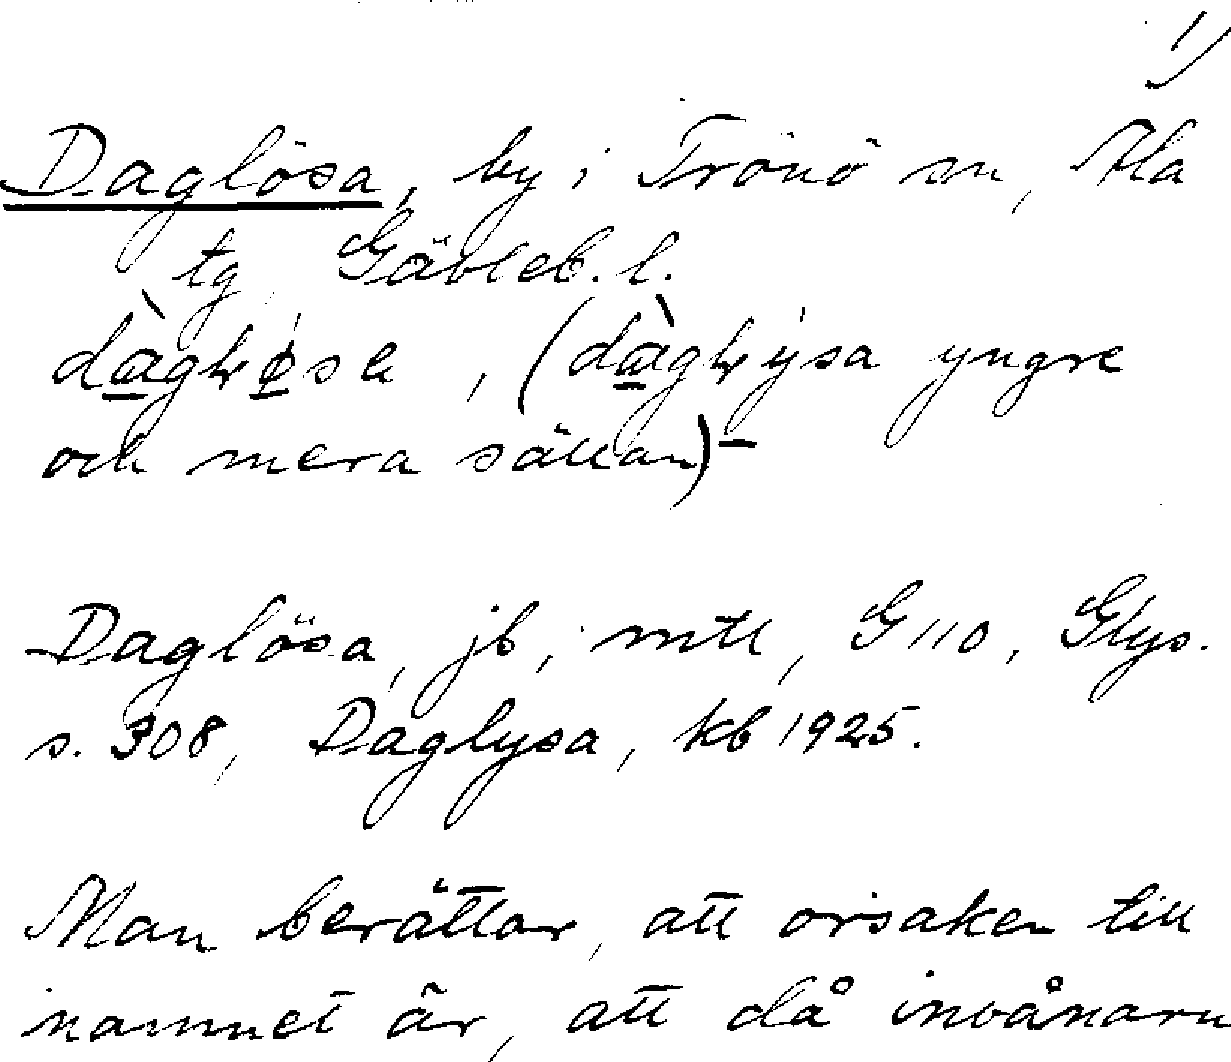 1)
Daglösa, by i Trönö sn, Ala
tg Gävleb. l.
och mera sällan)
Daglösa, jb, mtl, G 110, Glys.
s. 308, Daglysa, kb 1925.
Man berättar, att orsaken till
namnet är, att då invånarn